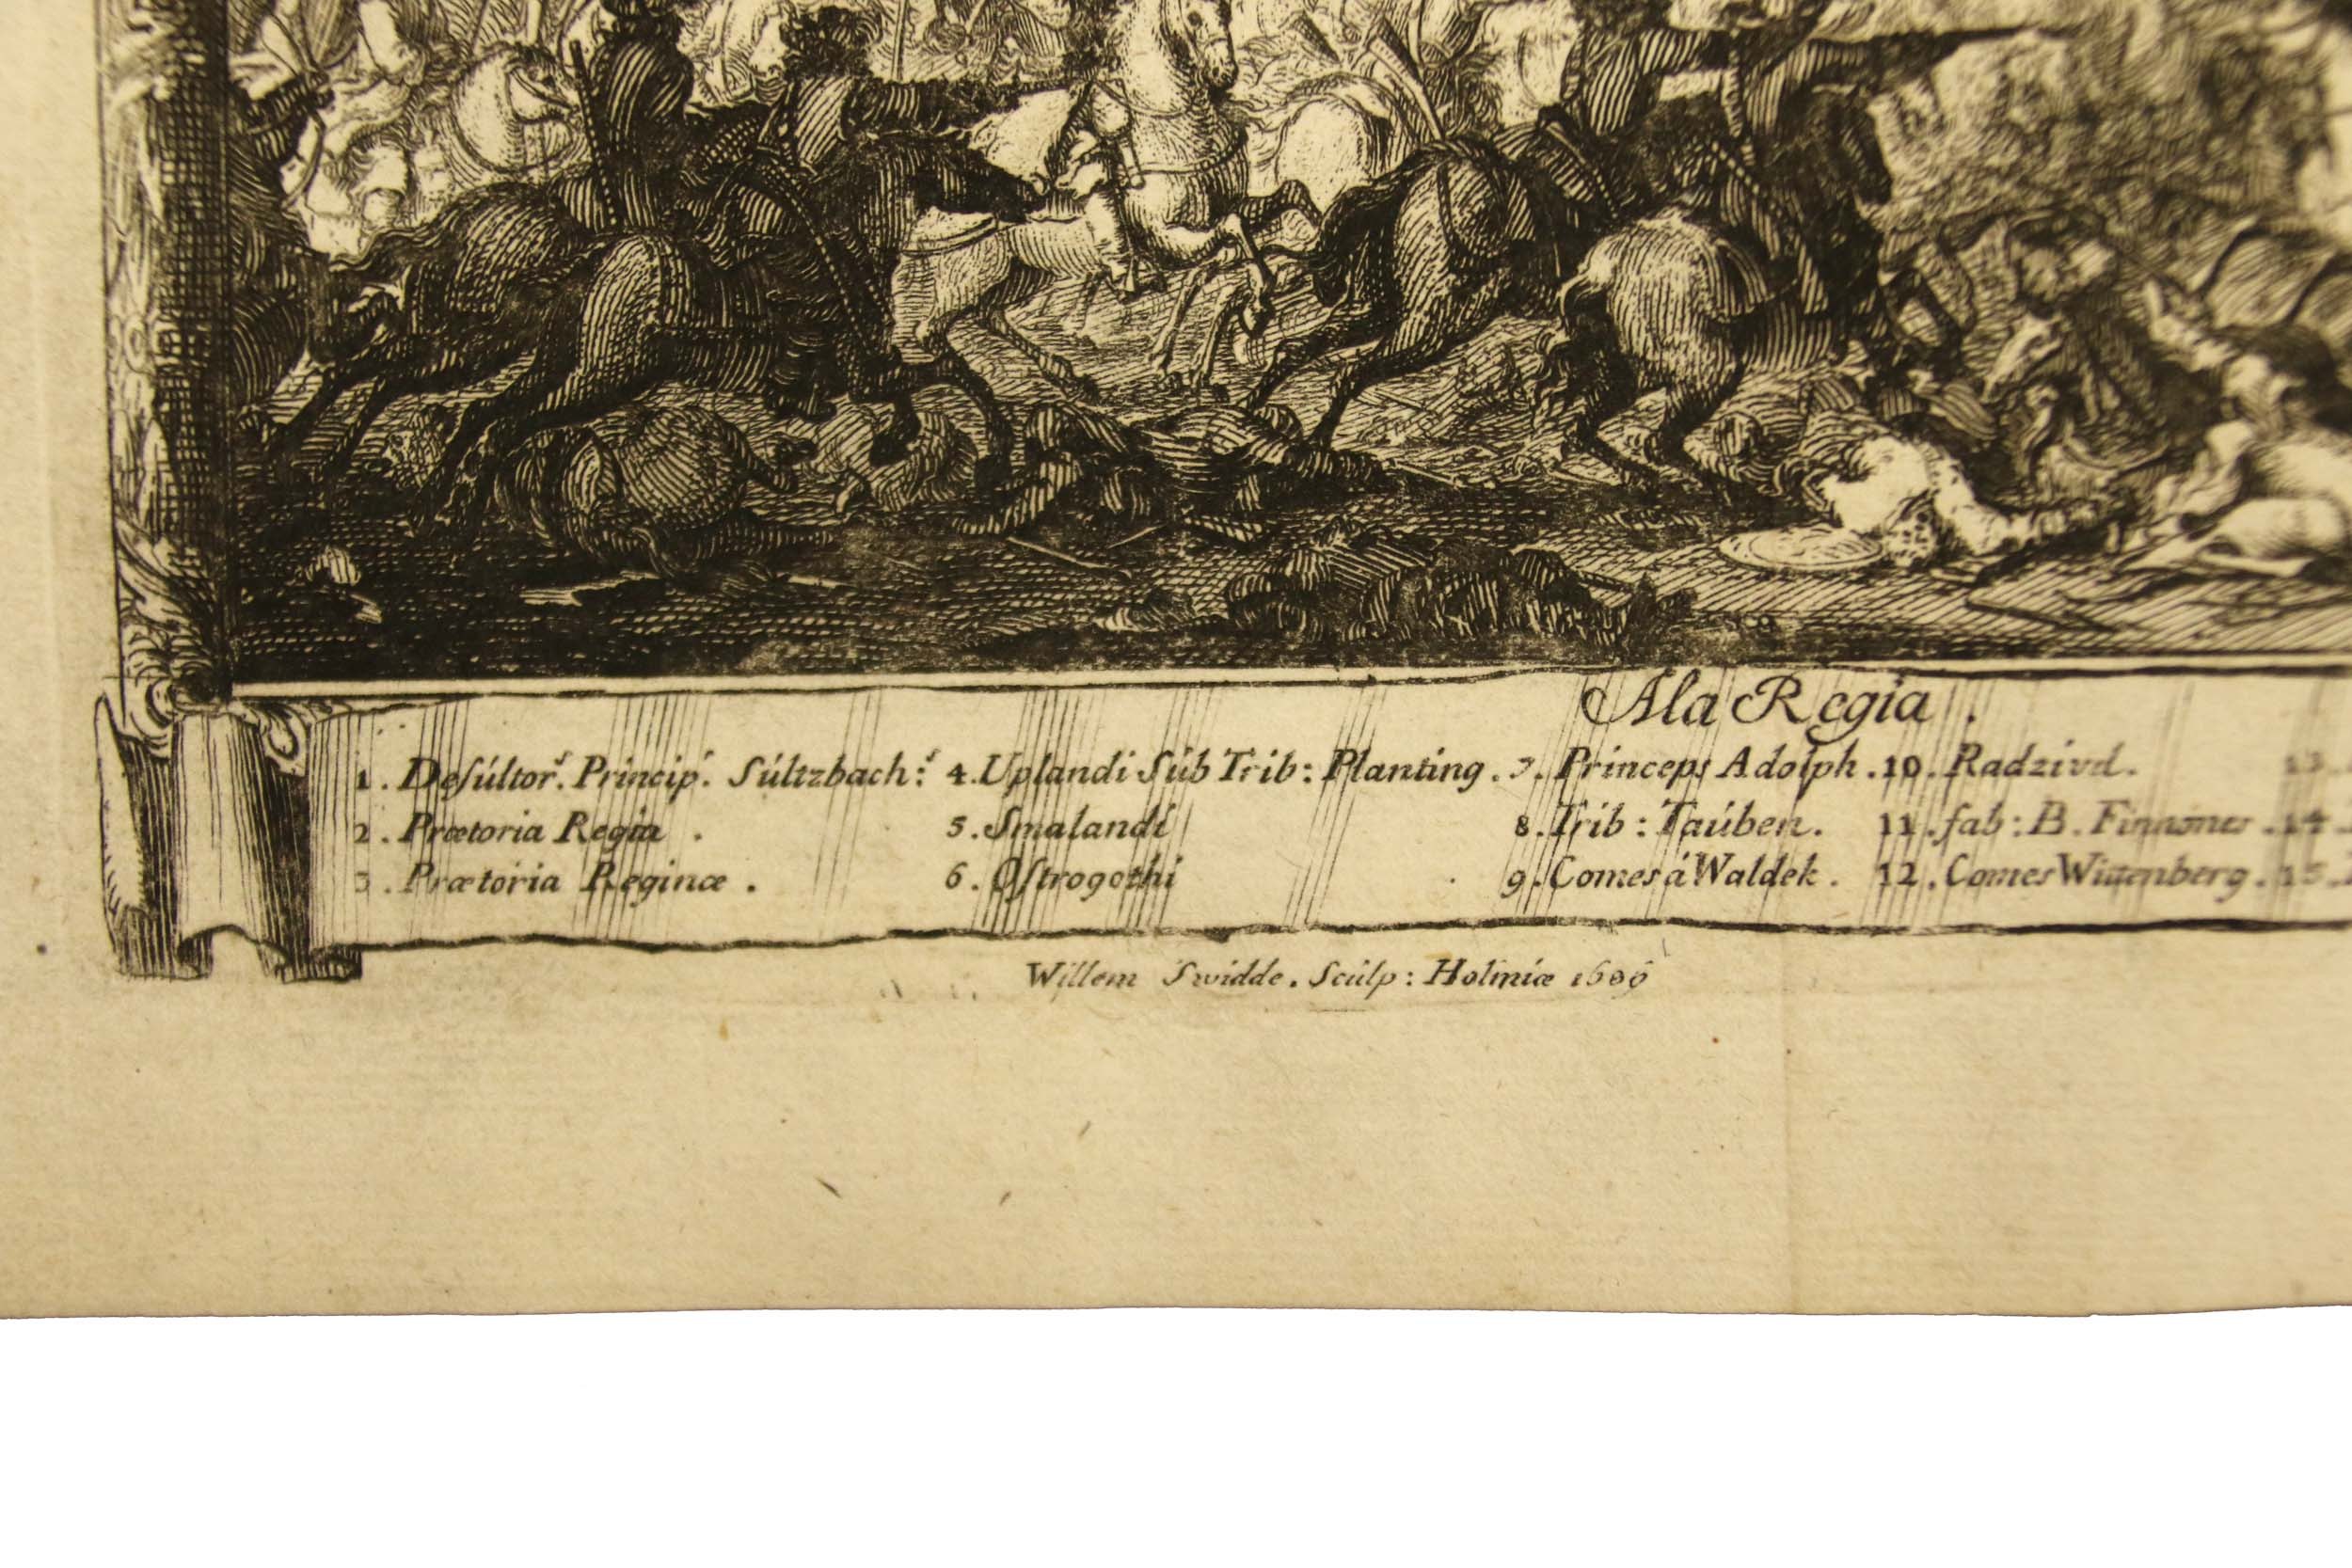 Ala Regia.
1. Deſúltor.ˢ Princip.ˢ Súltzbach:ˢ 4. Uplandi Súb Trib: Planting. 7. Princeps Adolph. 10. Radzivil. 13.
2. Prætoria Regia. 5. Smalandi 8. Trib: Taúben. 11. fab: B. Finnones. 14.
3. Prætoria Reginæ. 6. Oſtrogothi 9. Comes á Waldek. 12. Comes Wittenberg. 15.
Willem Swidde. Scúlp: Holmiæ